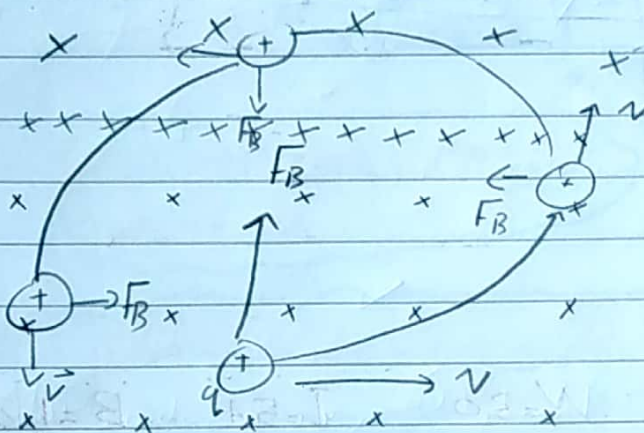 F_B
F_B
v
F_B
F_B
v⃗
q
v